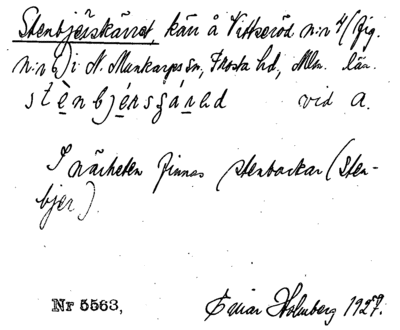 Stenbjerskärret, kärr å Vittseröd n:r 4 (fig.
n:r 2) i N. Munkarps sn, Frosta hd, Mlm. län.
stènbjérsgárd vid a.
I närheten finnas stenbackar (Sten-
bjer).
Nr 5563, Einar Holmberg 1927.